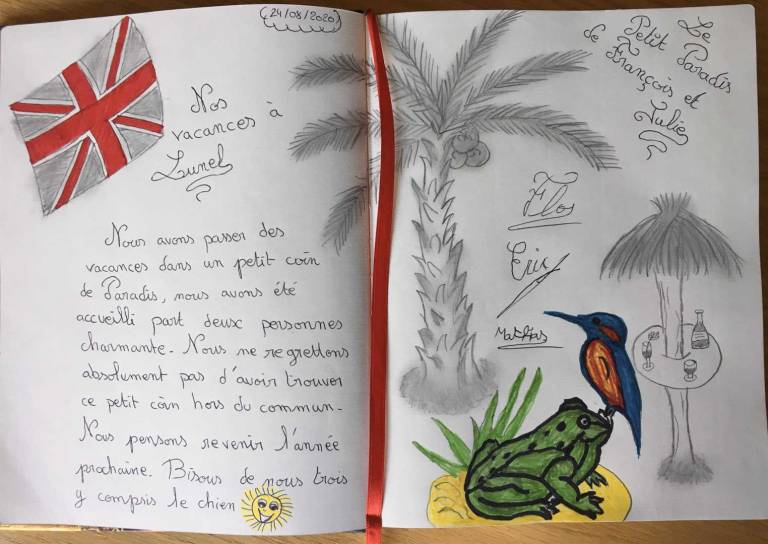 (24/08/2020)
Nos
vacances à
Lunel
Nous avons passer des
vacances dans un petit coin
de Paradis, nous avons été
accueilli part deux personnes
charmante. Nous ne regrettons
absolument pas d'avoir trouver
ce petit coin hors du commun.
Nous pensons revenir l'année
prochaine. Bisous de nous trois
y compris le chien
Le
Petit Paradis
de François et
Julie
Flos
Eric
Mathias